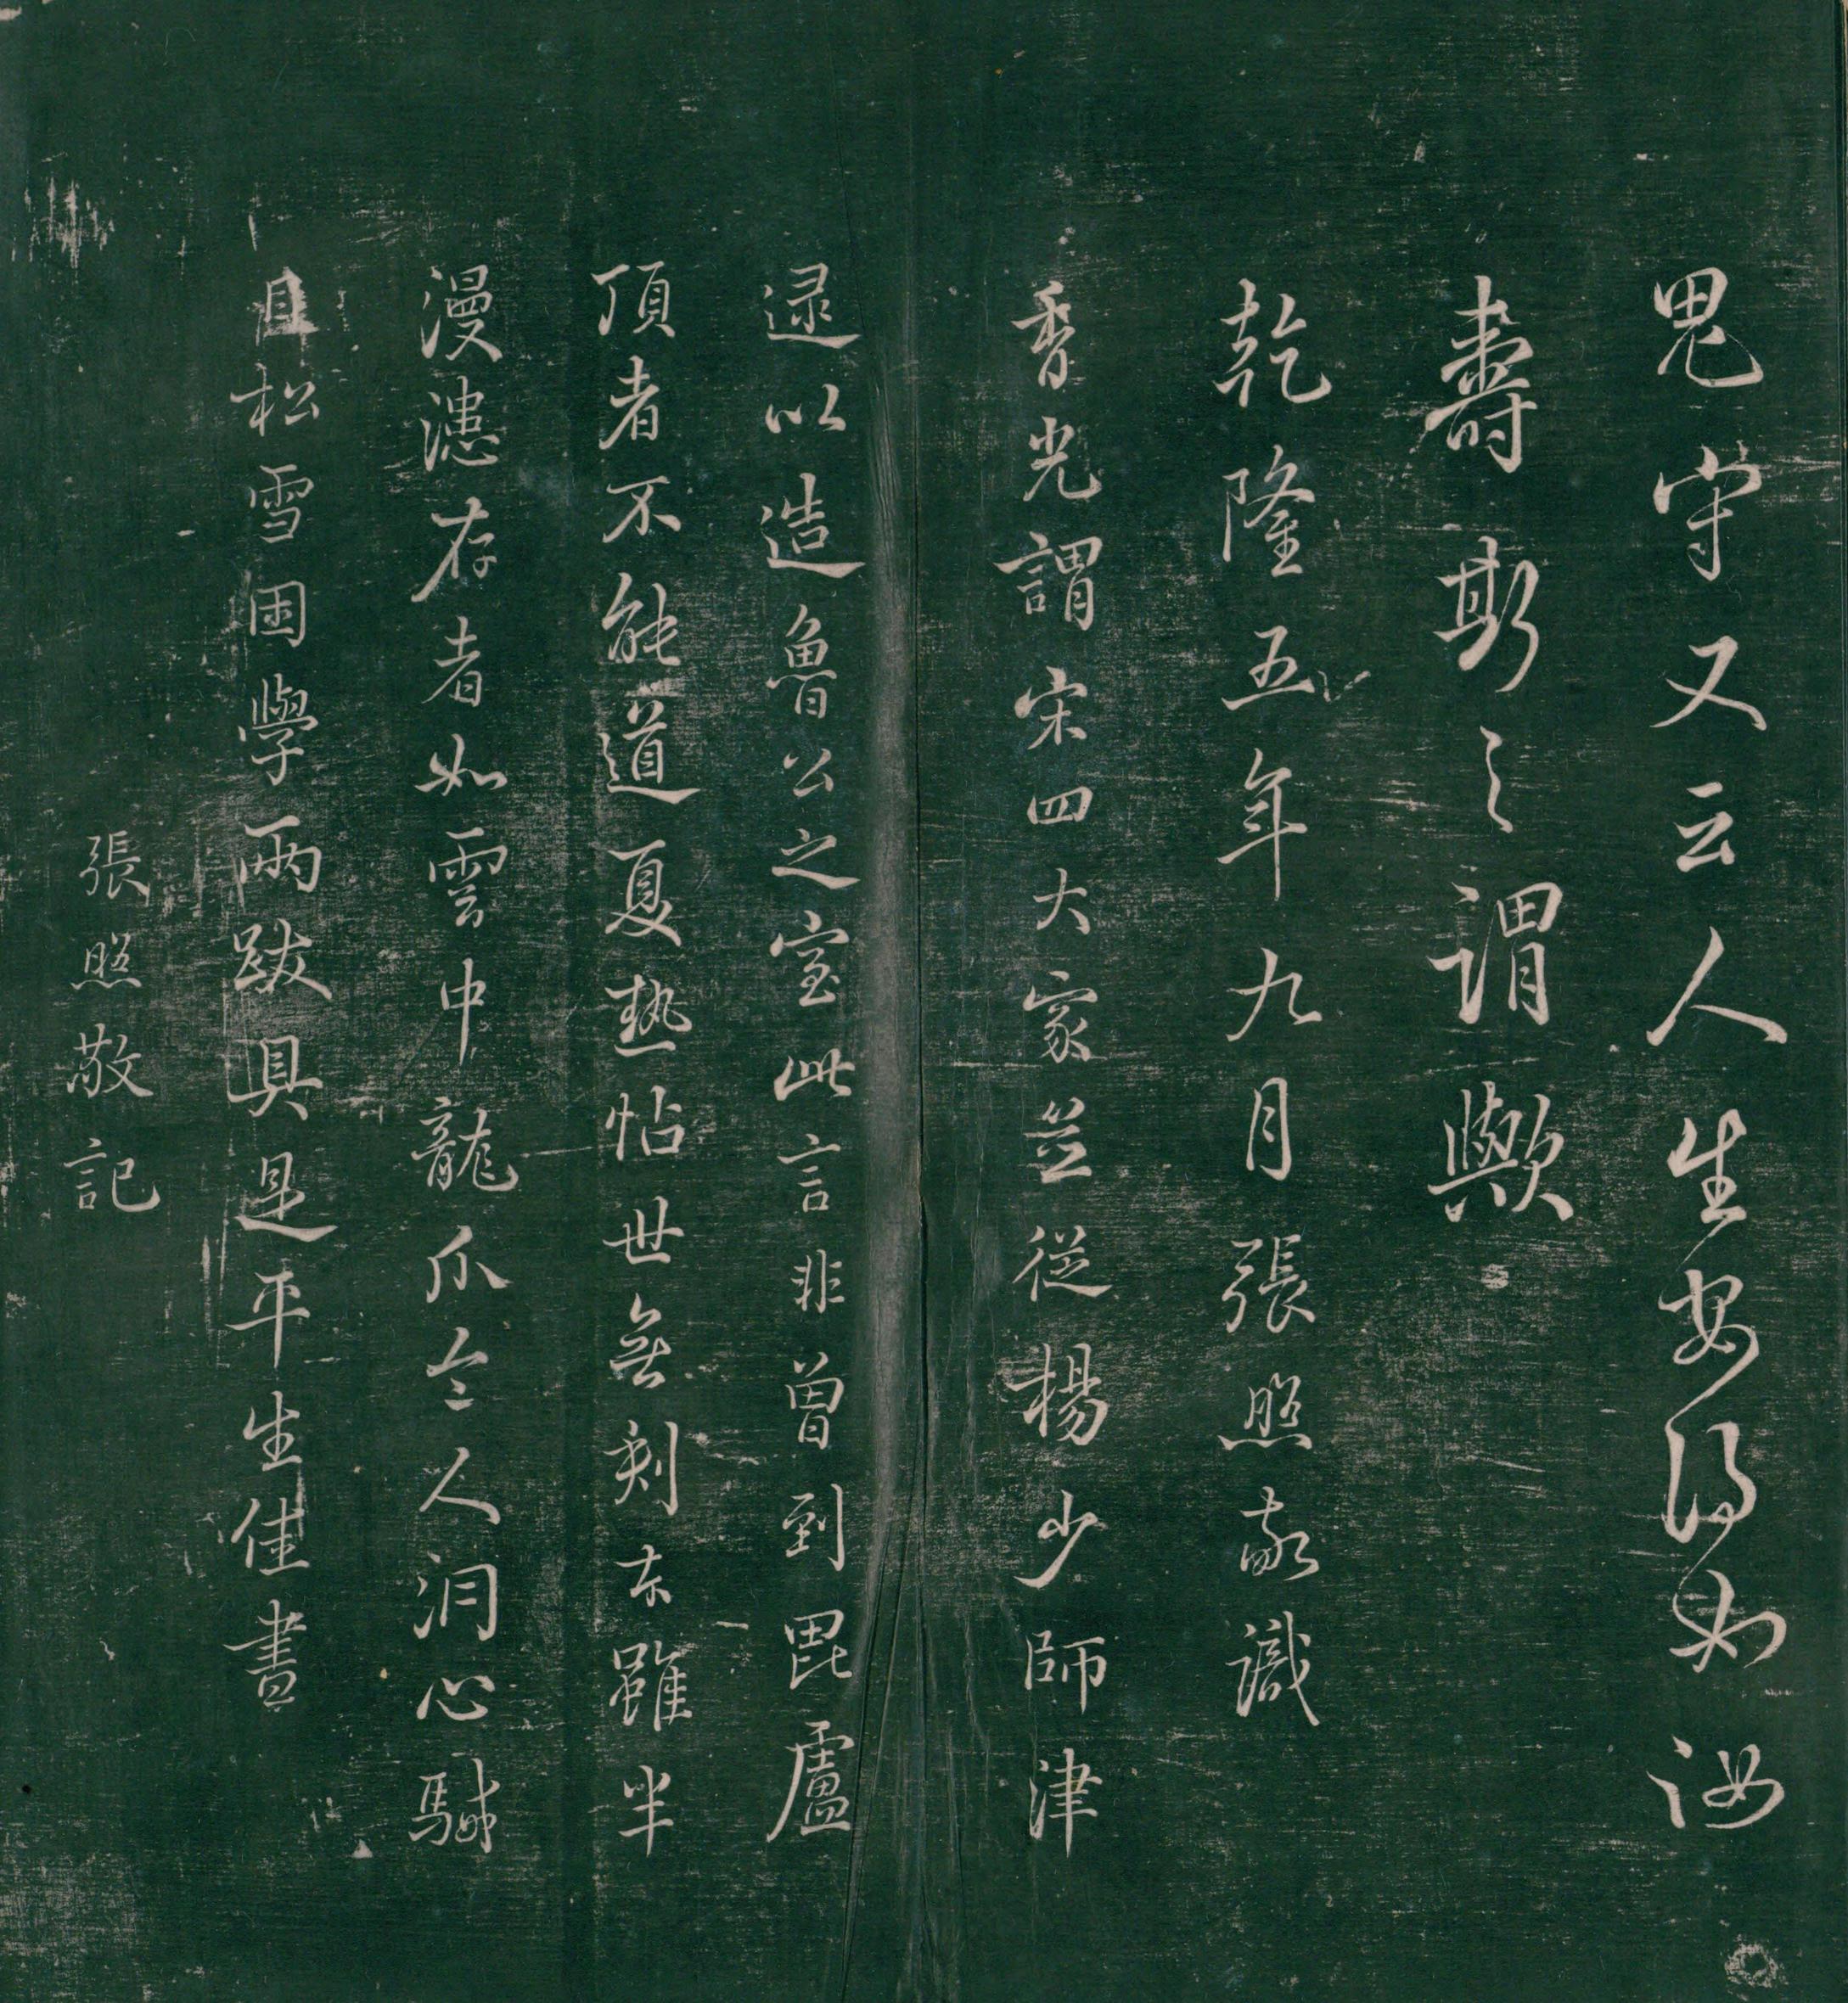 鬼守又云人生安得如汝
壽斯之謂歟
乾隆五年九月張照敬識
香光謂宋四大家並從楊少師津
逮以造魯公之室此言非曾到毘盧
頂者不能道夏熱帖世無刻本雖半
漫漶存者如雲中龍爪令人洞心駴
目松雪困學兩跋具是平生佳書
張照敬記